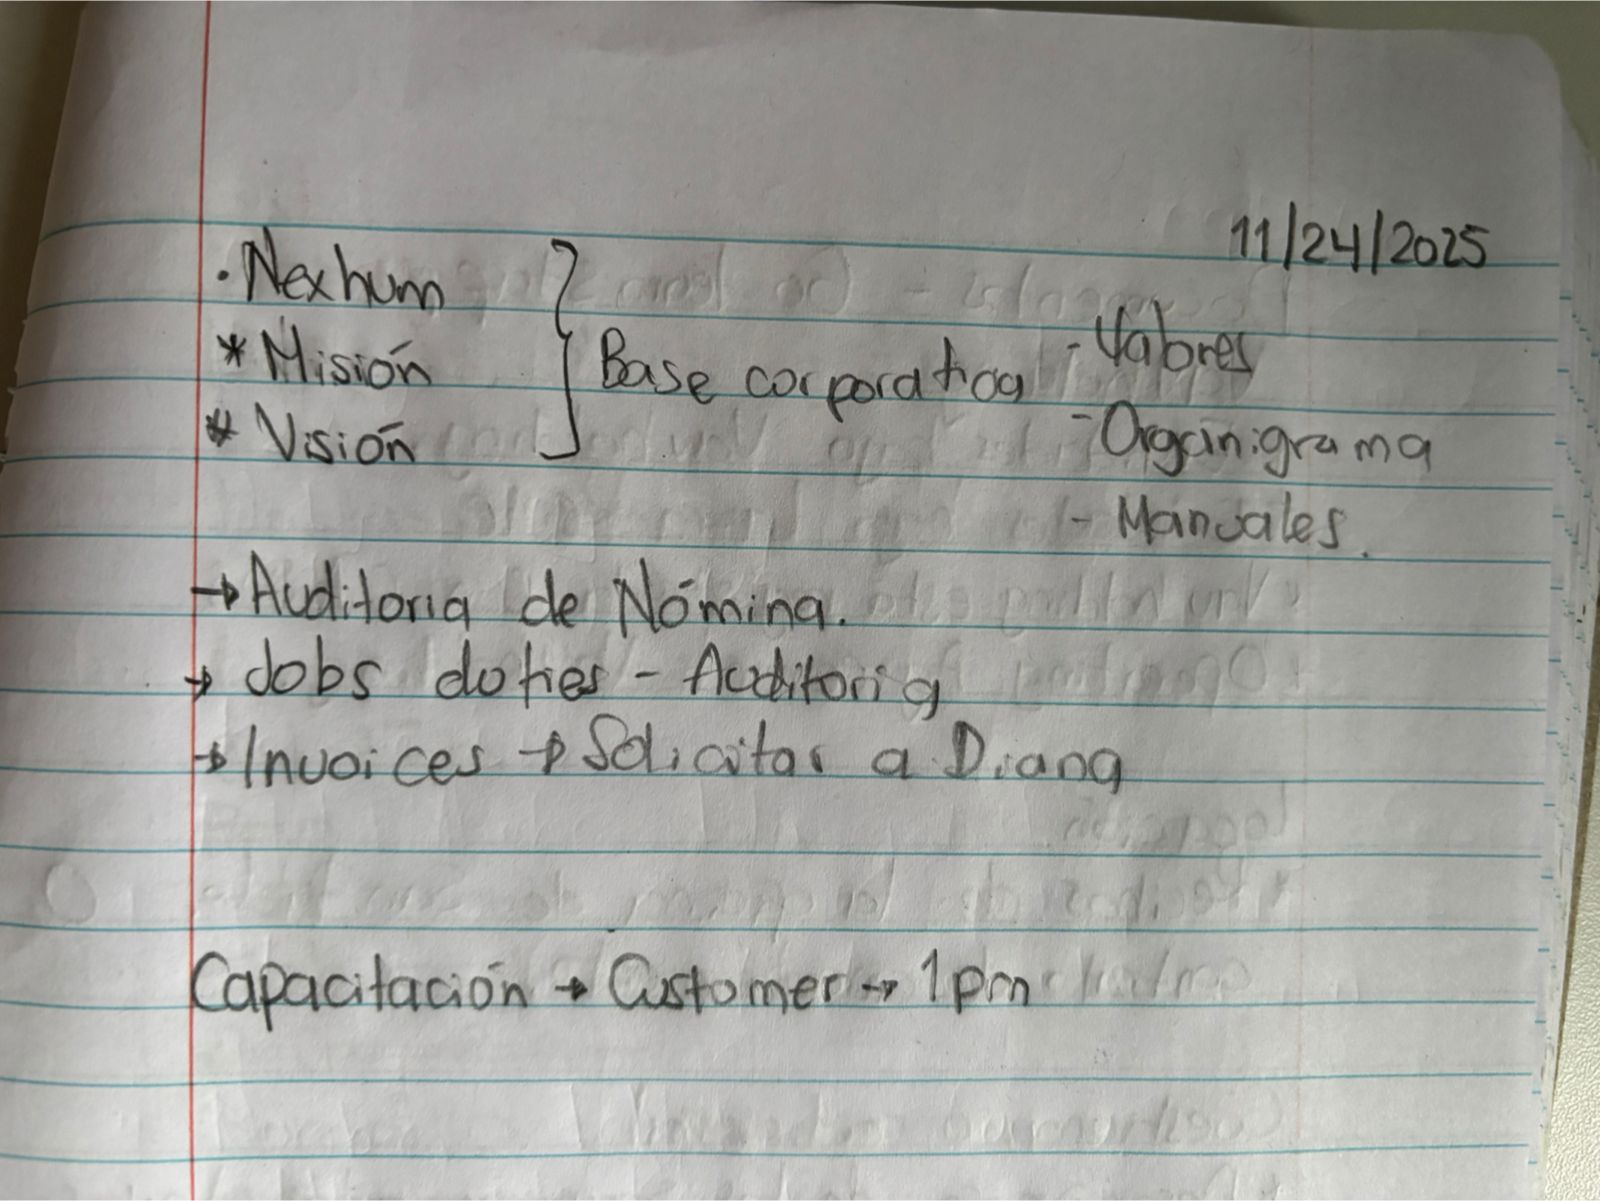 11/24/2025
· Nexhum
* Misión
* Visión
} Base corporativa
- Valores
- Organigrama
- Manuales.
→ Auditoria de Nómina.
→ Jobs duties - Auditoria
→ Invoices → Solicitar a Diana
Capacitación → Customer → 1pm